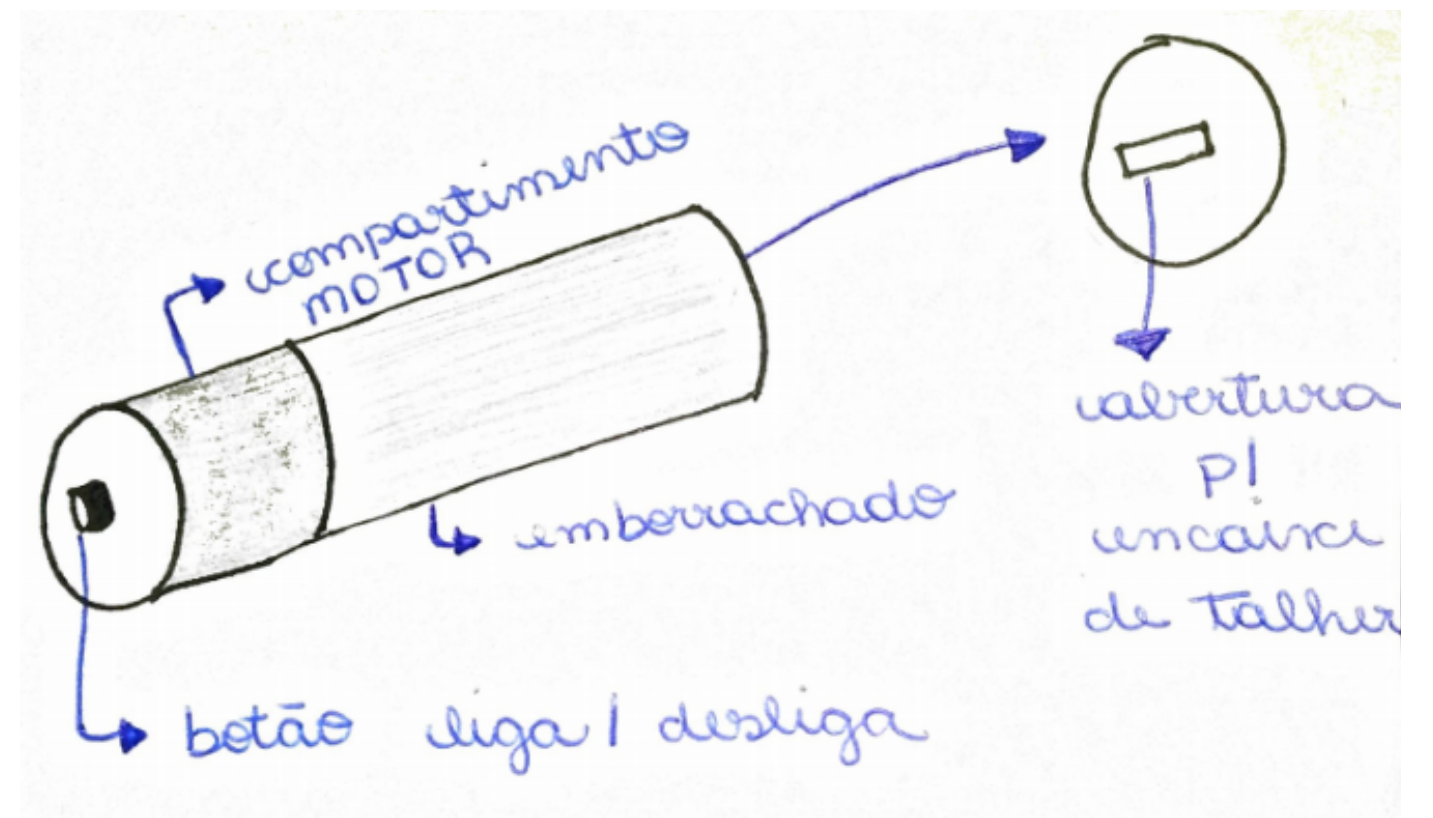 compartimento
MOTOR
abertura
p/
encaixe
de talher
emborrachado
botão liga / desliga